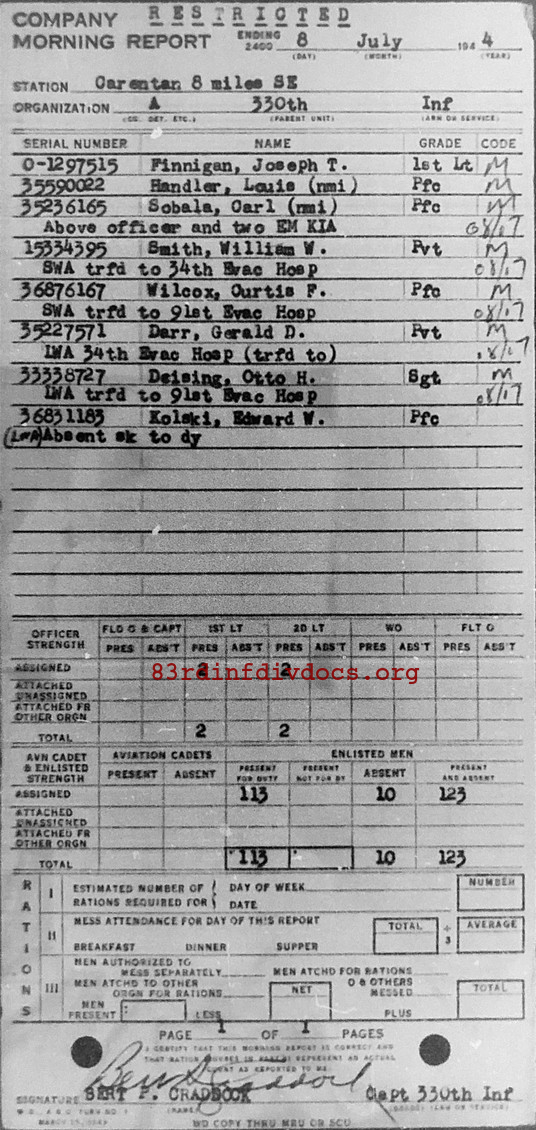 RESTRICTED
COMPANY
MORNING REPORT ENDING 2400 8 July 1944
(DAY) (MONTH) (YEAR)
STATION Carentan 8 miles SE
ORGANIZATION A 330th Inf
(CO. DET. ETC.) (PARENT UNIT) (ARM OR SERVICE)
SERIAL NUMBER NAME GRADE CODE
O-1297515 Finnigan, Joseph T. 1st Lt M
35590022 Handler, Louis (nmi) Pfc M
35236165 Sobala, Carl (nmi) Pfc M
Above officer and two EM KIA 08/17
15334395 Smith, William W. Pvt M
SWA trfd to 34th Evac Hosp 08/17
36876167 Wilcox, Curtis F. Pfc M
SWA trfd to 91st Evac Hosp 08/17
35227571 Darr, Gerald D. Pvt M
LWA 34th Evac Hosp (trfd to) 08/17
33338727 Deising, Otto H. Sgt M
LWA trfd to 91st Evac Hosp 08/17
36831183 Kolski, Edward W. Pfc
(LWA) Absent sk to dy
OFFICER STRENGTH FLD O & CAPT 1ST LT 2D LT WO FLT O
PRES ABS'T PRES ABS'T PRES ABS'T PRES ABS'T PRES ABS'T
ASSIGNED 2 2
83rdinfdivdocs.org
ATTACHED UNASSIGNED
ATTACHED FR OTHER ORGN
TOTAL 2 2
AVN CADET & ENLISTED STRENGTH AVIATION CADETS ENLISTED MEN
PRESENT ABSENT PRESENT FOR DUTY PRESENT NOT FOR DY ABSENT PRESENT AND ABSENT
ASSIGNED 113 10 123
ATTACHED UNASSIGNED
ATTACHED FR OTHER ORGN
TOTAL 113 10 123
RATIONS
I ESTIMATED NUMBER OF DAY OF WEEK NUMBER
RATIONS REQUIRED FOR DATE
II MESS ATTENDANCE FOR DAY OF THIS REPORT TOTAL ÷ 3 AVERAGE
BREAKFAST DINNER SUPPER
III MEN AUTHORIZED TO MESS SEPARATELY MEN ATCHD FOR RATIONS
MEN ATCHD TO OTHER ORGN FOR RATIONS NET O & OTHERS MESSED TOTAL
MEN PRESENT LESS PLUS
PAGE 1 OF 1 PAGES
I CERTIFY THAT THIS MORNING REPORT IS CORRECT AND
THAT RATION FIGURES IN PART III REPRESENT AN ACTUAL
COUNT AS REPORTED TO ME
SIGNATURE BERT P. CRADDOCK Capt 330th Inf
(NAME) (GRADE) (ARM OR SERVICE)
W.D., A.G.O. FORM NO. 1
MARCH
WD COPY THRU MRU OR SCU